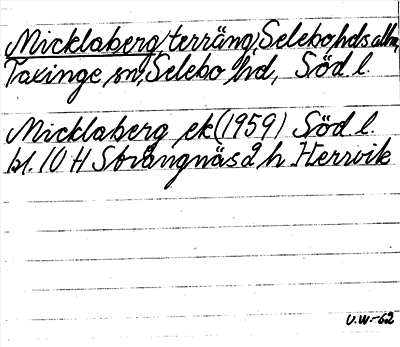 Micklaberg, terräng, Selebo hds allm,
Taxinge sn, Selebo hd, Söd l.
Micklaberg ek (1959) Söd l.
bl. 10 H Strängnäs 2 h Herrvik
U.W.-62